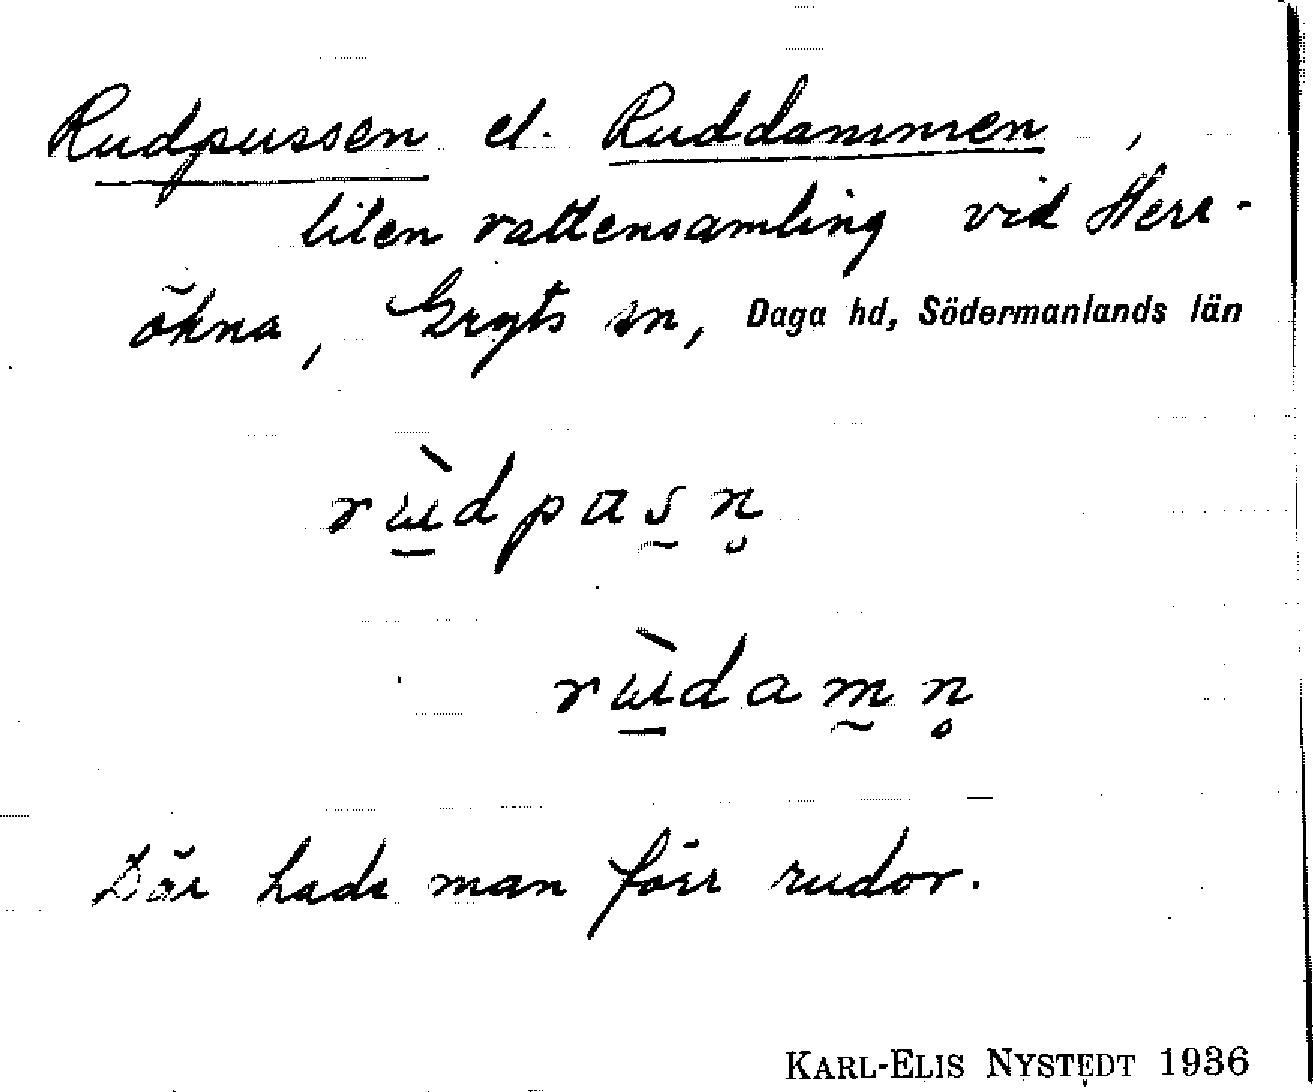 Rudpussen el. Ruddammen,
liten vattensamling vid Herr-
ökna, Gryts sn, Daga hd, Södermanlands län
rɯ̀dpasn̥
rɯ̀damn̥
Där hade man förr rudor.
KARL-ELIS NYSTEDT 1936